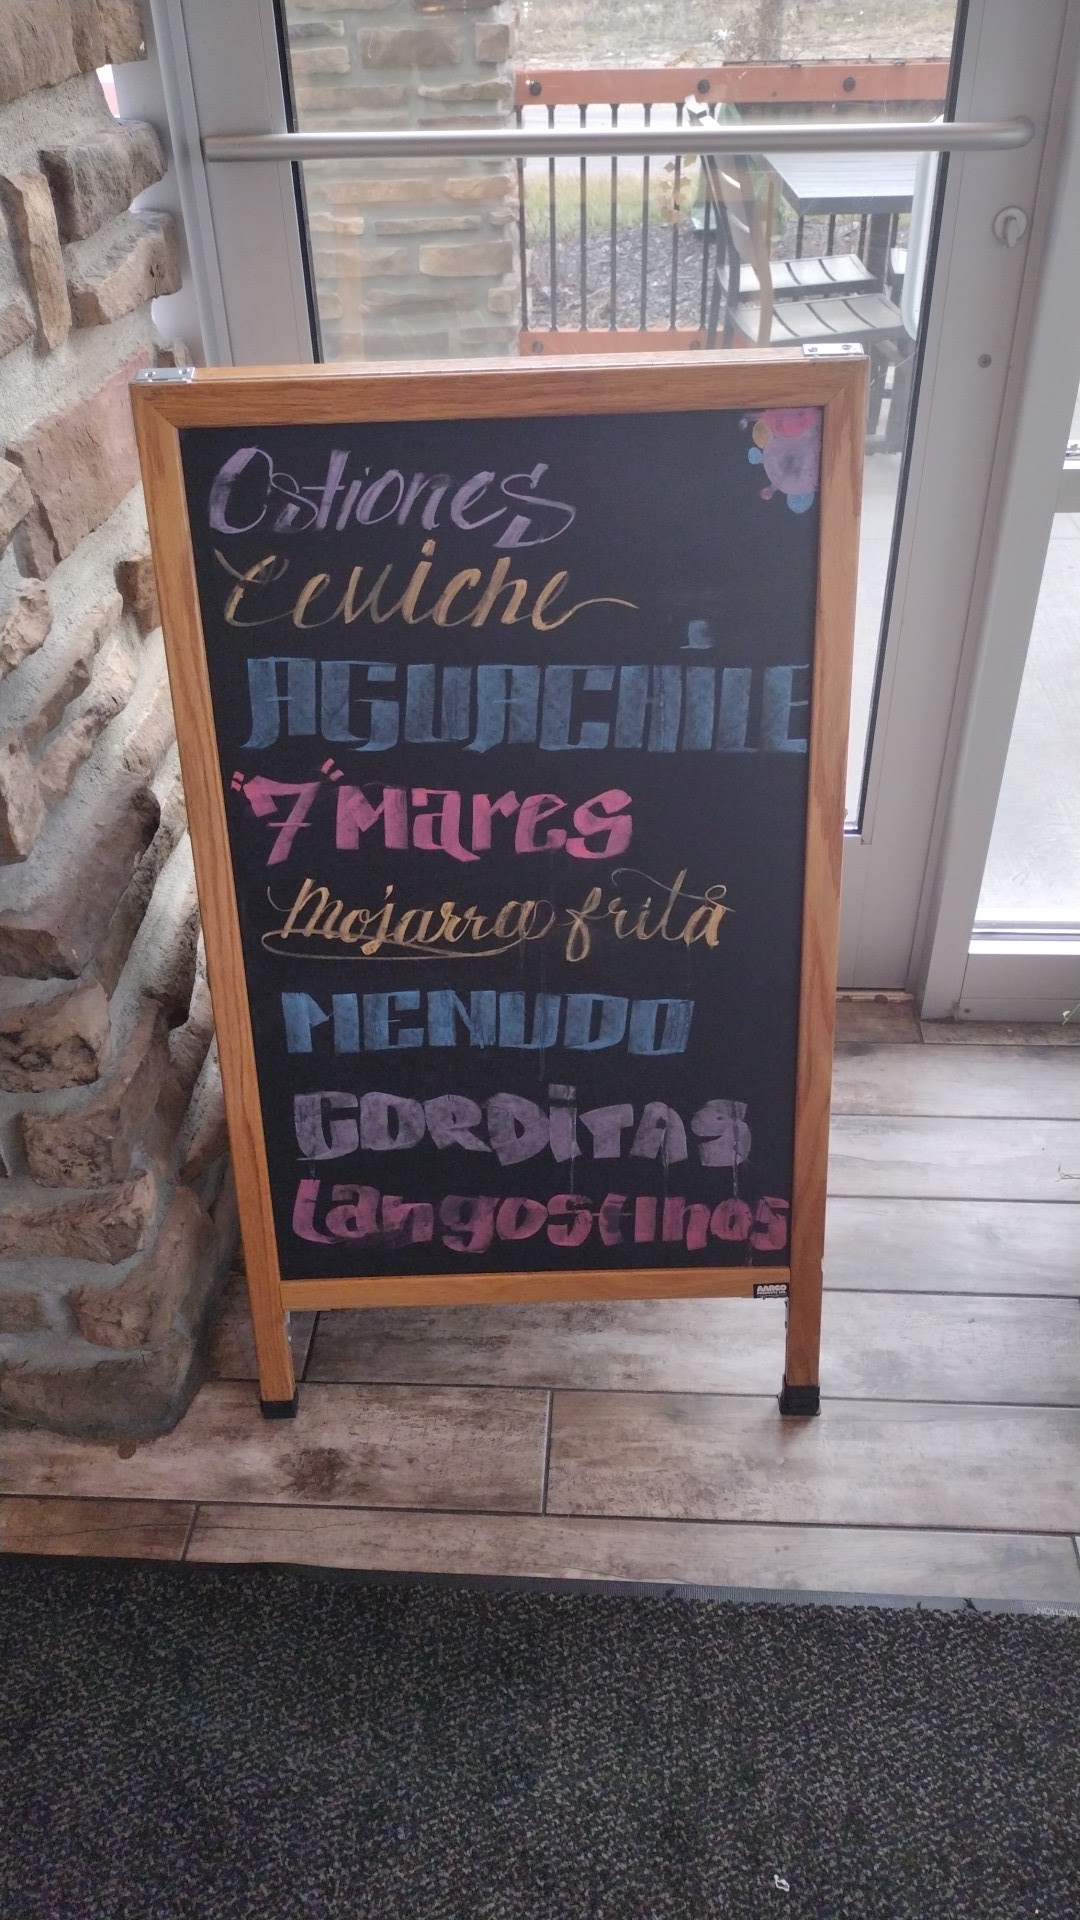 Ostiones
Ceviche
AGUACHiLE
"7" Mares
Mojarra frita
MENUDO
GORDiTAS
Langostinos
AARCO